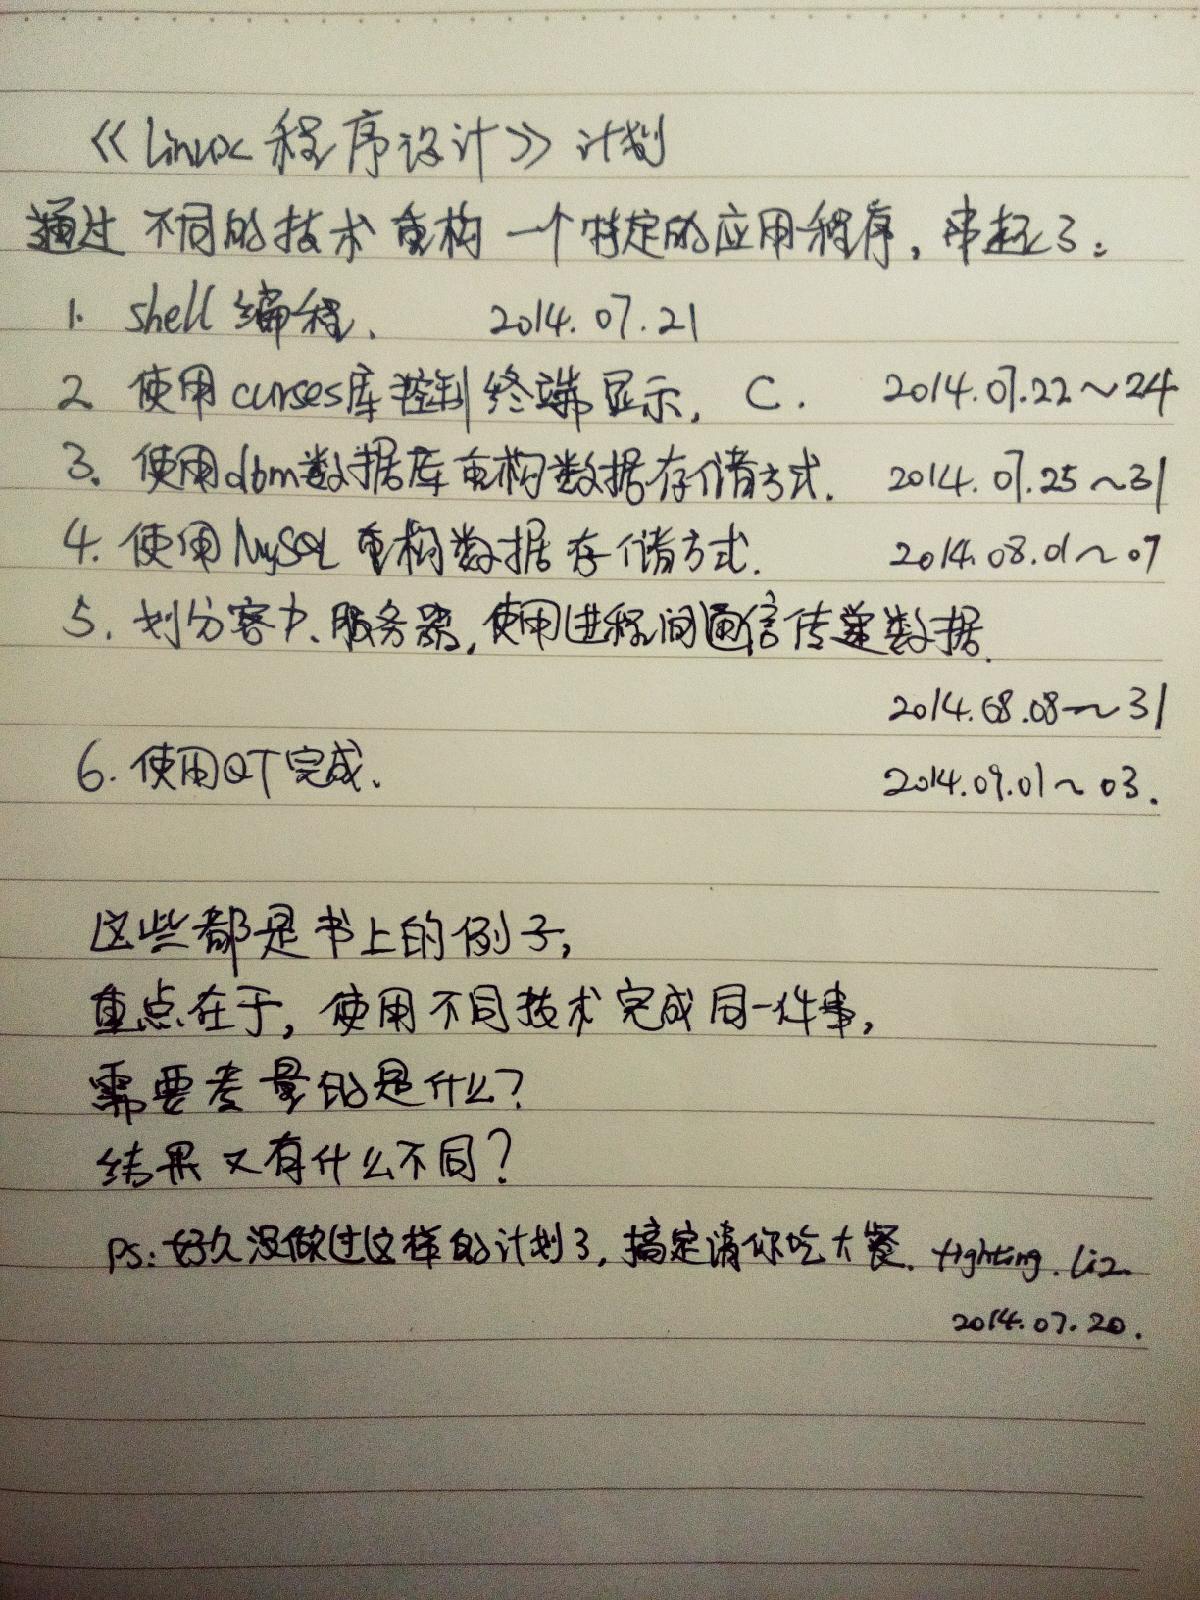 《Linux程序设计》计划
通过不同的技术重构一个特定的应用程序，串起了：
1. shell编程. 2014.07.21
2 使用curses库控制终端显示. C. 2014.07.22～24
3. 使用dbm数据库重构数据存储方式. 2014.07.25～31
4. 使用MySQL重构数据存储方式. 2014.08.01～07
5. 划分客户、服务器, 使用进程间通信传递数据.
2014.08.08～31
6. 使用QT完成. 2014.09.01～03.
这些都是书上的例子,
重点在于, 使用不同技术完成同一件事,
需要考量的是什么?
结果又有什么不同?
Ps: 好久没做过这样的计划了, 搞定请你吃大餐. fighting. Liz.
2014.07.20.